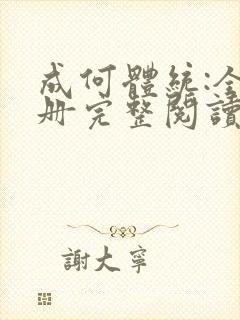 成何體統:全
冊完整閱讀
謝大寧